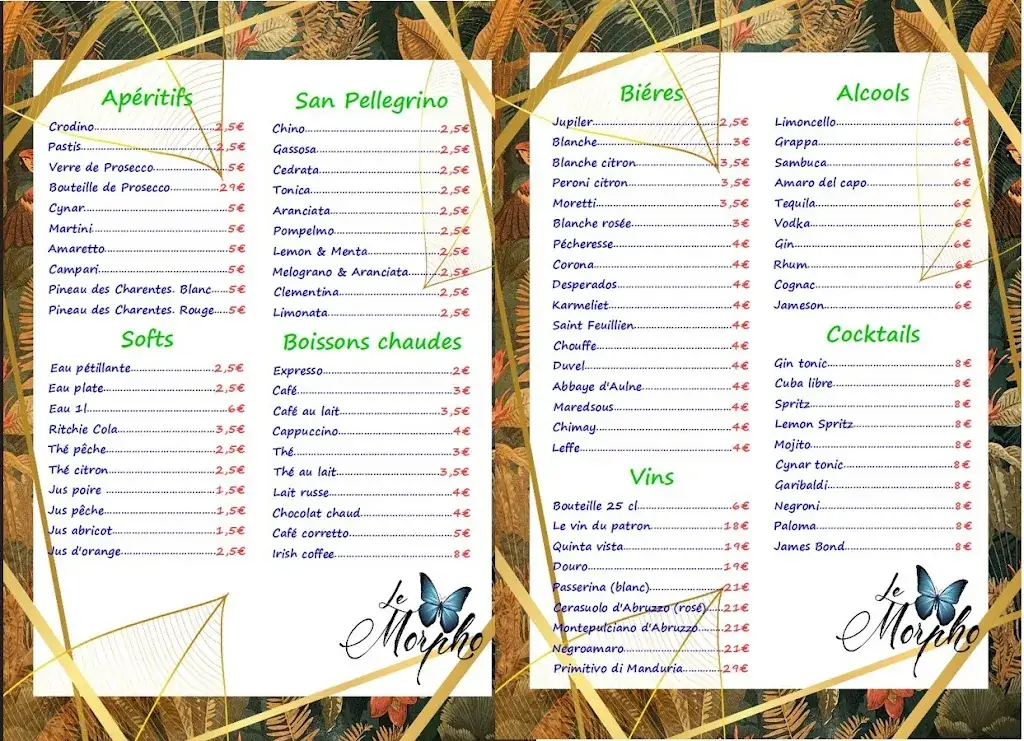 Apéritifs
Crodino 2,5€
Pastis 2,5€
Verre de Prosecco 5€
Bouteille de Prosecco 29€
Cynar 5€
Martini 5€
Amaretto 5€
Campari 5€
Pineau des Charentes. Blanc 5€
Pineau des Charentes. Rouge 5€
Softs
Eau pétillante 2,5€
Eau plate 2,5€
Eau 1l 6€
Ritchie Cola 3,5€
Thé pêche 2,5€
Thé citron 2,5€
Jus poire 1,5€
Jus pêche 1,5€
Jus abricot 1,5€
Jus d'orange 2,5€
San Pellegrino
Chino 2,5€
Gassosa 2,5€
Cedrata 2,5€
Tonica 2,5€
Aranciata 2,5€
Pompelmo 2,5€
Lemon & Menta 2,5€
Melograno & Aranciata 2,5€
Clementina 2,5€
Limonata 2,5€
Boissons chaudes
Expresso 2€
Café 3€
Café au lait 3,5€
Cappuccino 4€
Thé 3€
Thé au lait 3,5€
Lait russe 4€
Chocolat chaud 4€
Café corretto 5€
Irish coffee 8€
Le
Morpho
Biéres
Jupiler 2,5€
Blanche 3€
Blanche citron 3,5€
Peroni citron 3,5€
Moretti 3,5€
Blanche rosée 3€
Pécheresse 4€
Corona 4€
Desperados 4€
Karmeliet 4€
Saint Feuillien 4€
Chouffe 4€
Duvel 4€
Abbaye d'Aulne 4€
Maredsous 4€
Chimay 4€
Leffe 4€
Vins
Bouteille 25 cl 6€
Le vin du patron 18€
Quinta vista 19€
Douro 19€
Passerina (blanc) 21€
Cerasuolo d'Abruzzo (rosé) 21€
Montepulciano d'Abruzzo 21€
Negroamaro 21€
Primitivo di Manduria 29€
Alcools
Limoncello 6€
Grappa 6€
Sambuca 6€
Amaro del capo 6€
Tequila 6€
Vodka 6€
Gin 6€
Rhum 6€
Cognac 6€
Jameson 6€
Cocktails
Gin tonic 8€
Cuba libre 8€
Spritz 8€
Lemon Spritz 8€
Mojito 8€
Cynar tonic 8€
Garibaldi 8€
Negroni 8€
Paloma 8€
James Bond 8€
Le
Morpho